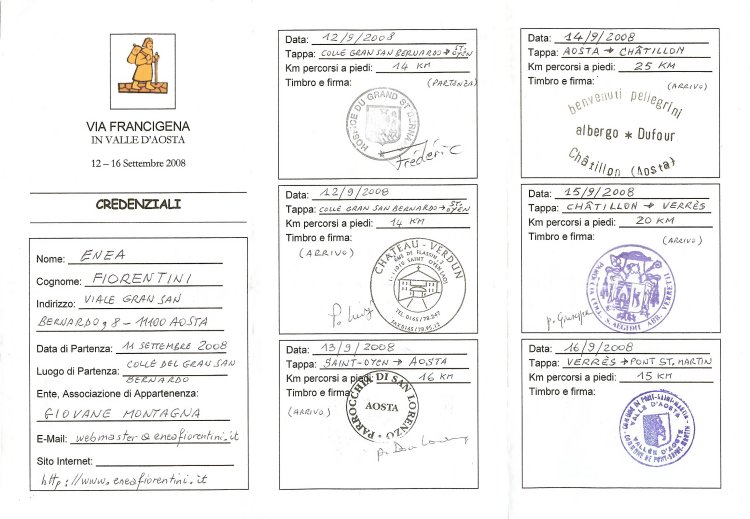 VIA FRANCIGENA
IN VALLE D'AOSTA
12 – 16 Settembre 2008
CREDENZIALI
Nome: ENEA
Cognome: FIORENTINI
Indirizzo: VIALE GRAN SAN
BERNARDO, 8 - 11100 AOSTA
Data di Partenza: 11 SETTEMBRE 2008
Luogo di Partenza: COLLE DEL GRAN SAN
BERNARDO
Ente, Associazione di Appartenenza:
GIOVANE MONTAGNA
E-Mail: webmaster@eneafiorentini.it
Sito Internet:
http://www.eneafiorentini.it
Data: 12/9/2008
Tappa: COLLE GRAN SAN BERNARDO → ST. OYEN
Km percorsi a piedi: 14 KM
Timbro e firma: (PARTENZA)
HOSPICE DU GRAND ST BERNARD
Frédéric
Data: 12/9/2008
Tappa: COLLE GRAN SAN BERNARDO → ST. OYEN
Km percorsi a piedi: 14 KM
Timbro e firma:
(ARRIVO)
CHATEAU - VERDUN
11010 SAINT OYEN (AO)
TEL. 0165/78.247
FAX. 0165/78.95.12
P. Luigi
Data: 13/9/2008
Tappa: SAINT-OYEN → AOSTA
Km percorsi a piedi: 16 KM
Timbro e firma:
(ARRIVO)
PARROCCHIA DI SAN LORENZO
AOSTA
Data: 14/9/2008
Tappa: AOSTA → CHÂTILLON
Km percorsi a piedi: 25 KM
Timbro e firma: (ARRIVO)
benvenuti pellegrini
albergo * Dufour
Châtillon (Aosta)
Data: 15/9/2008
Tappa: CHÂTILLON → VERRÈS
Km percorsi a piedi: 20 KM
Timbro e firma: (ARRIVO)
p. Giuseppe
Data: 16/9/2008
Tappa: VERRÈS → PONT ST. MARTIN
Km percorsi a piedi: 15 KM
Timbro e firma:
(ARRIVO)
COMUNE DI PONT-SAINT-MARTIN
VALLE D'AOSTA
VALLÉE D'AOSTE
COMMUNE DE PONT-SAINT-MARTIN